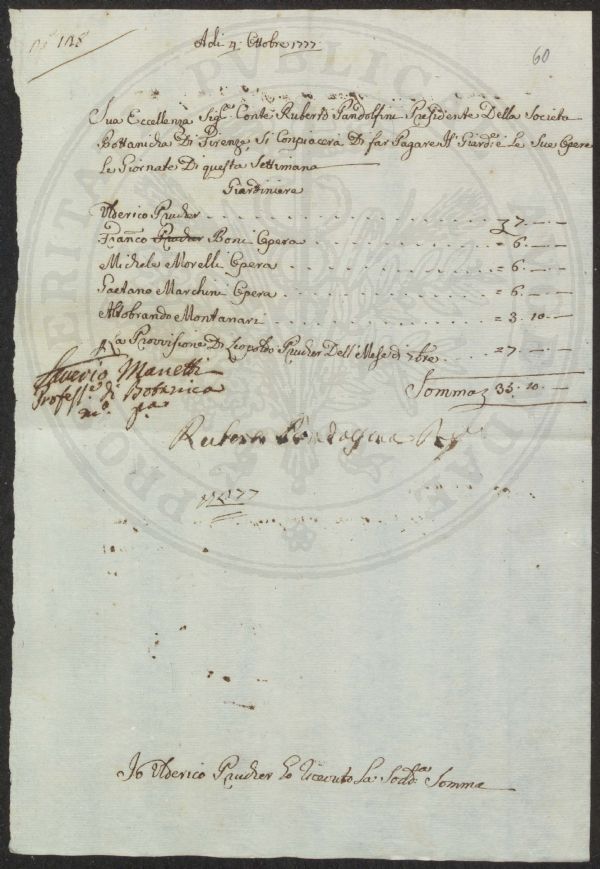 N.º 148
Adi 4. Ottobre 1777.
60
Sua Eccellenza Sig.r Conte Ruberto Pandolfini Presidente Della Societa
Bottanicha Di Firenze, Si Conpiacera Di far Pagare Il Giard.re e Le Sue Opere
Le Giornate Di questa Settimana
Giardiniere
Ulderico Prucher . . . . . . . . . . 7. — —
Franco Prucher Boni Opera . . . . . . . . = 6. — —
Michele Morelli Opera . . . . . . . . = 6. — —
Gaetano Marchini Opera . . . . . . . . = 6. — —
Aldobrando Montanari . . . . . . . . = 3. 10. —
La Provvisione Di Leopoldo Prucher Dell Mese di 7bre . . = 7. — —
Somma 35. 10. —
Saverio Manetti
Profess.e di Botanica
m.o p.a
Ruberto Pandolfini
Io Ulderico Prucher ho riceuto La Sodd.a Somma
PUBLICA
VERITAS